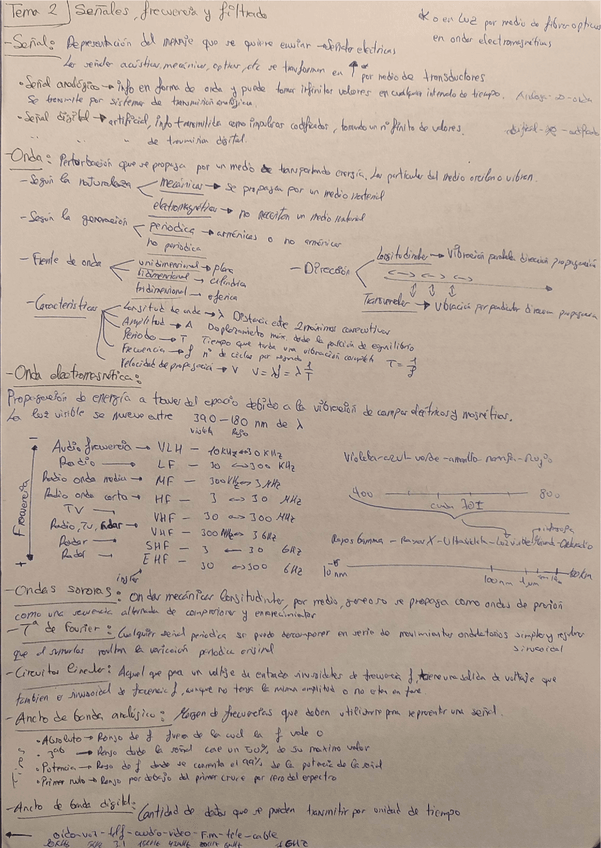 Tema 2 Señales, frecuencia y filtrado
* o en luz por medio de fibra optica
en ondas electromagneticas
- Señal: Representación del mensaje que se quiere enviar → Señales electricas
Las señales acústicas, mecánicas, opticas, etc se transforman en ↑ * por medio de transductores
• Señal analógica → info en forma de onda y puede tomar infinitos valores en cualquier intervalo de tiempo.
Se transmite por sistema de transmisión analógica.
• Señal digital → artificial, info transmitida como impulsos codificados, tomando un nº finito de valores.
" " " de transmision digital.
- Onda: Perturbación que se propaga por un medio transportando energía. Las particulas del medio oscilan o vibran.
- Según la naturaleza
mecánicas → se propagan por un medio material
electromagnéticas → no necesitan un medio material
- Según la generación
periodica → armónicas o no armónicas
no periodica
- Frente de onda
unidimensional → plana
bidimensional → cilindrica
tridimensional → esferica
- Dirección
Longitudinales → Vibración paralela dirección propagación
Transversales → Vibración perpendicular direccion propagacion
- Caracteristicas
Longitud de onda → λ Distancia entre 2 máximos consecutivos
Amplitud → A Desplazamiento máx desde la posición de equilibrio
Periodo → T Tiempo que tarda una vibración completa T = 1/f
Frecuencia → f nº de ciclos por segundo
Velocidad de propagación → V V = λf = λ 1/T
- Onda electromagnética:
Propagación de energía a traves del espacio debido a la vibración de campos electricos y magnéticos.
La luz visible se mueve entre 390 - 180 nm de λ
violeta Rojo
Frecuencia
Audio frecuencia → VLH - 10KHz ↔ 30 KHz
Radio → LF - 30 ↔ 300 KHz
Radio onda media → MF - 300KHz ↔ 3 MHz
Radio onda corta → HF - 3 ↔ 30 MHz
TV → VHF - 30 ↔ 300 MHz
Radio, TV, Radar → VHF - 300 MHz ↔ 3 GHz
Radar → SHF - 3 ↔ 30 GHz
Radar → EHF - 30 ↔ 300 GHz
Violeta - azul - verde - amarillo - naranja - Rojo
400 800
Rayos Gamma - Rayos X - Ultravioleta - Luz visible
10 nm 100 nm 1 μm
- Ondas sonoras: Ondas mecánicas Longitudinales, por medio, gaseoso se propaga como ondas de presión
como una secuencia alternada de compresiones y enrarecimientos
- Tª de Fourier: Cualquier señal periodica se puede descomponer en serie de movimientos ondulatorios simples y regulares
sinusoidal
que al sumarlos resulten la variación periodica original
- Circuitos lineales: Aquel que para un voltaje de entrada sinusoidal de frecuencia f, tiene una salida de voltaje que
tambien es sinusoidal de frecuencia f, aunque no tenga la misma amplitud o no esten en fase.
- Ancho de banda analógico: Margen de frecuencias que deben utilizarse para representar una señal.
• Absoluto → Rango de f fuera de la cual la f vale 0
• 3 dB → Rango donde la señal cae un 50% de su maximo valor
• Potencia → Rango de f donde se concentra el 99% de la potencia de la señal
• Primer nulo → Rango por debajo del primer cruce por cero del espectro
- Ancho de banda digital: Cantidad de datos que se pueden transmitir por unidad de tiempo
← oido - voz - telf - audio - video - F.m - tele - cable